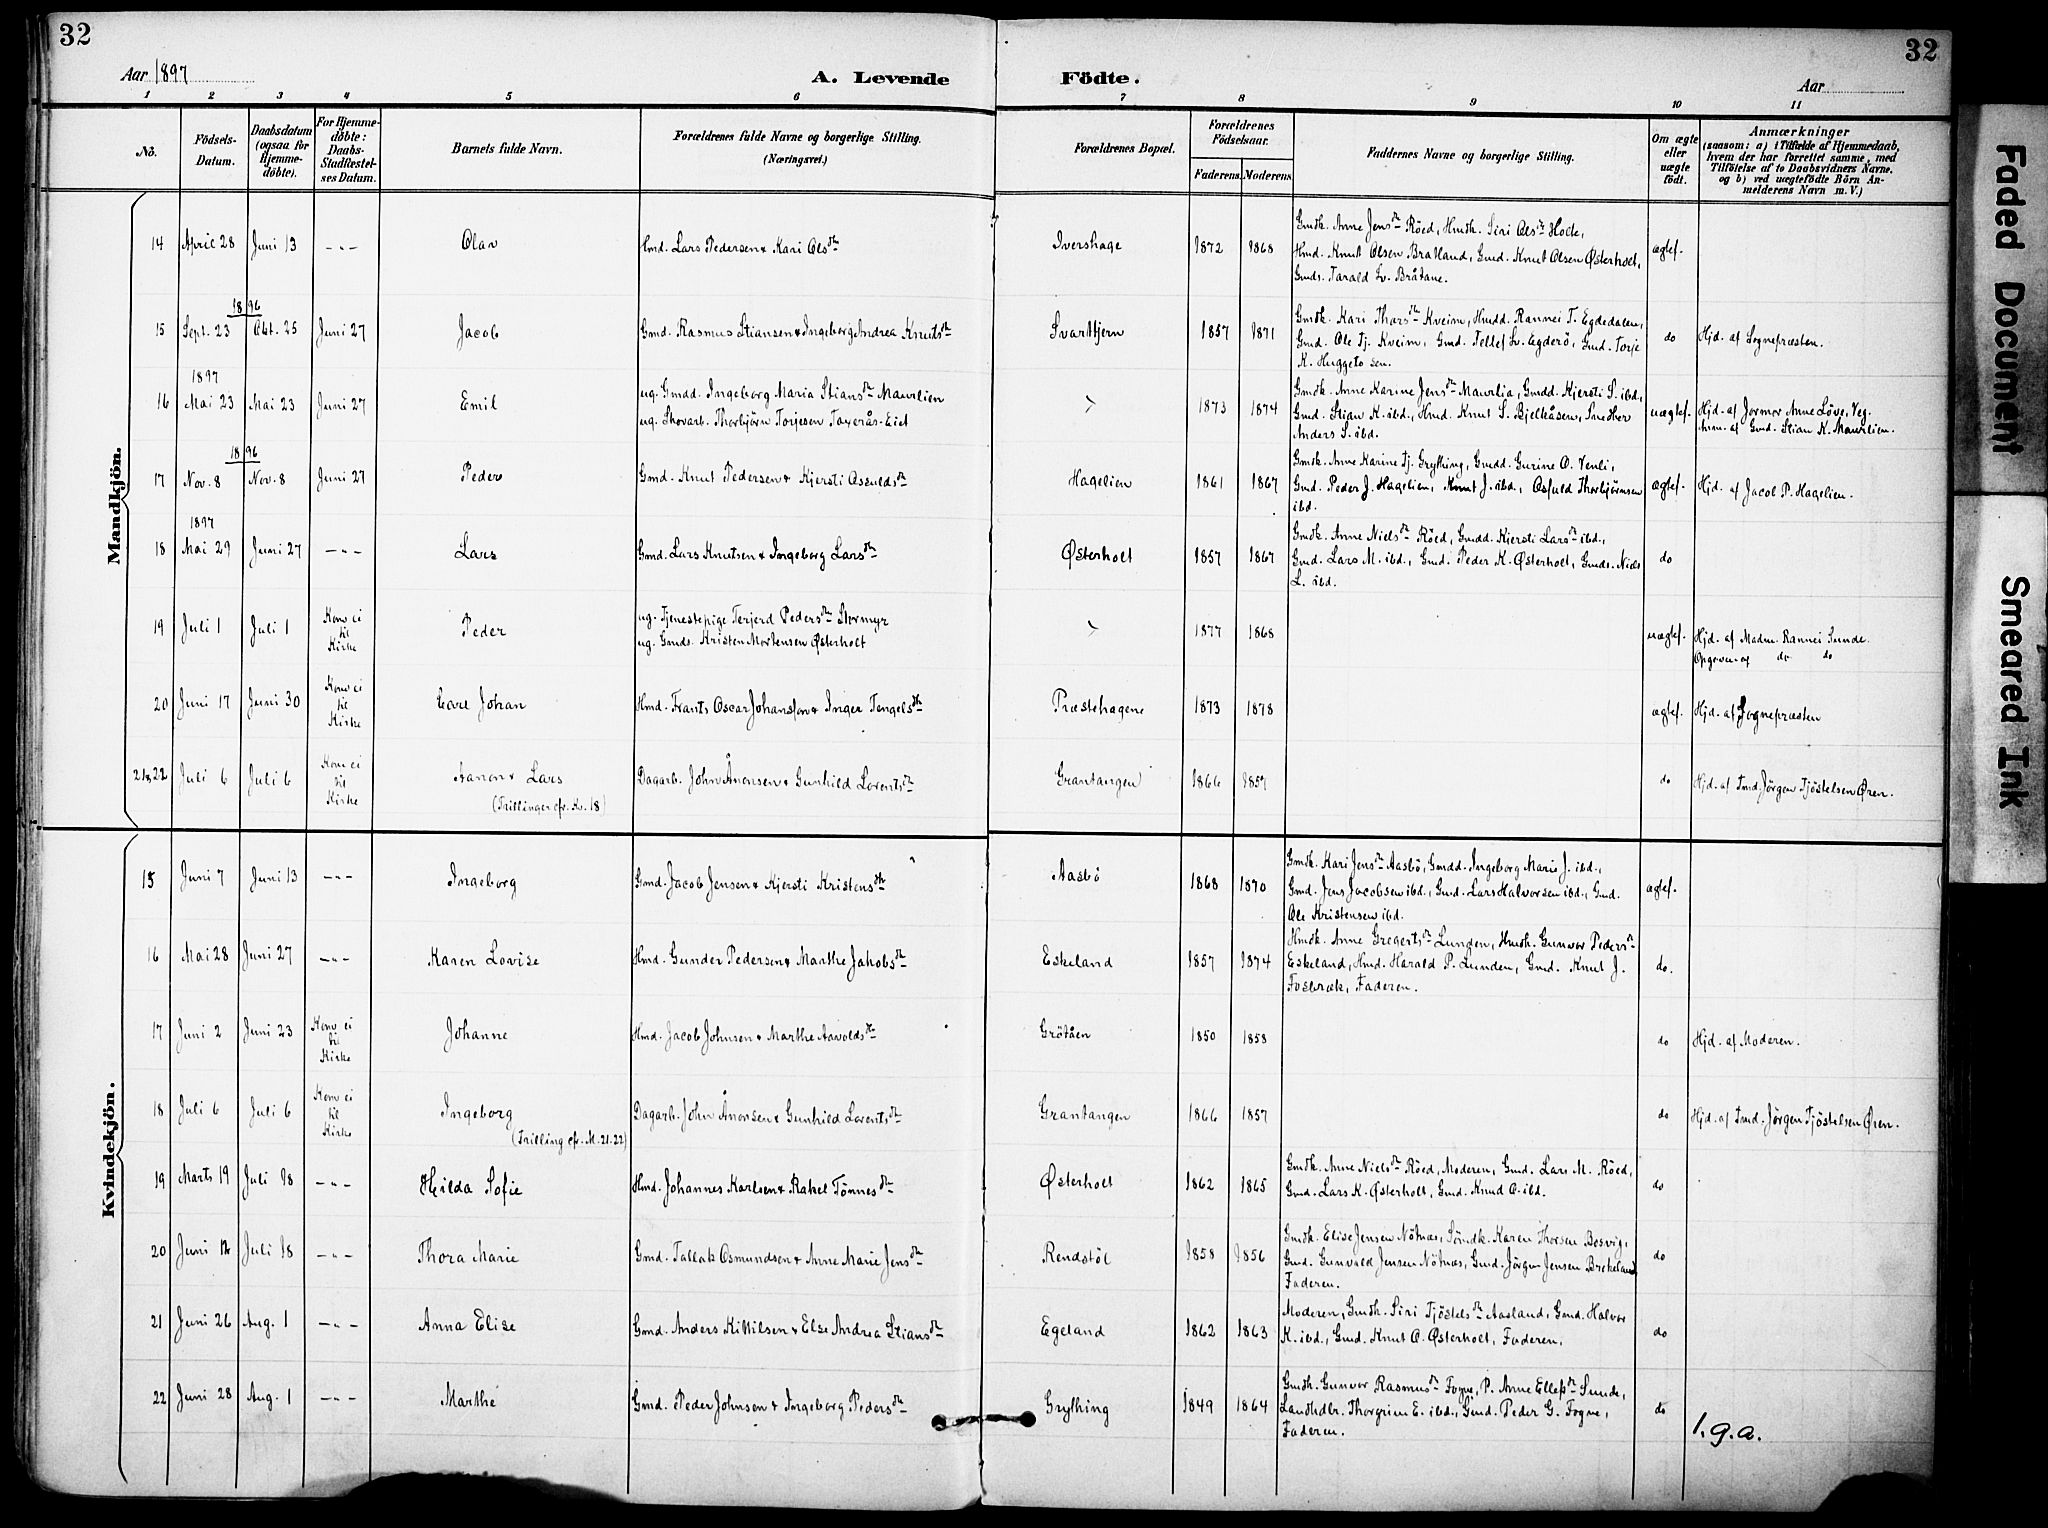 32
32
Aar 1897
A. Levende Födte.
Aar
1 2 3 4 5 6 7 8 9 10 11
No.
Födsels-Datum.
Daabsdatum (ogsaa for Hjemmedöbte).
For Hjemmedöbte: Daabs-Stadfæstelses Datum.
Barnets fulde Navn.
Forældrenes fulde Navne og borgerlige Stilling. (Næringsvei.)
Forældrenes Bopæl.
Forældrenes Födselsaar.
Faderens. Moderens.
Faddernes Navne og borgerlige Stilling.
Om ægte eller uægte födt.
Anmærkninger
(saasom: a) i Tilfælde af Hjemmedaab, hvem der har forrettet samme, med Tilföielse af to Daabsvidners Navne, og b) ved uægtefödte Börn Anmelderens Navn m. V.)
Mandkjön.
14 April 28 Juni 13 -"- Olav Hmd. Lars Pedersen & Kari Olsdtr Ivershage 1872 1868
Gmdk. Anne Jensdtr Röed, Hmdk. Siri Olsdtr Holte,
Hmd. Knut Olsen Bratland, Gmd. Knut Olsen Østerholt,
Gmds. Tarald L. Bråtane.
ægtef.
1896
15 Sept. 23 Okt. 25 Juni 27 Jacob Gmd. Rasmus Stiansen & Ingeborg Andrea Knutsdtr Svarttjern 1857 1871
Gmdk. Kari Tharsdtr Kveim, Hmdd. Rannei T. Egdedalen,
Gmd. Ole Tj. Kveim, Gmd. Tellef L. Egderö, Gmd. Torje
K. Huggeto sen.
do Hjd. af Sognepræsten.
1897
16 Mai 23 Mai 23 Juni 27 Emil
ug. Gmdd. Ingeborg Maria Stiansdtr Maurlien
ug. Skovarb. Thorbjörn Torjesen Taxerås-Eiet
1873 1874
Gmdk. Anne Karine Jensdtr Maurlia, Gmdd. Kjersti S. ibd.,
Gmd. Stian K. ibd., Hmd. Knut S. Bjelkåsen, Snedker
Anders S. ibd.
uægtef. Hjd. af Jormor Anne Löve, Veg.
Anm. af Gmd. Stian K. Maurlien.
1896
17 Nov. 8 Nov. 8 Juni 27 Peder Gmd. Knut Pedersen & Kjersti Osuldsdtr Hagelien 1861 1867
Gmdk. Anne Karine Tj. Grytting, Gmdd. Gurine O. Venli,
Gmd. Peder J. Hagelien, Knut J. ibd., Osfuld Thorbjörnsen
ibd.
ægtef. Hjd. af Jacob P. Hagelien.
1897
18 Mai 29 Juni 27 -"- Lars Gmd. Lars Knutsen & Ingeborg Larsdtr Østerholt 1857 1867
Gmdk. Anne Nielsdtr Röed, Gmdd. Kjersti Larsdtr ibd.,
Gmd. Lars M. ibd., Gmd. Peder K. Østerholt, Gmds. Niels
L. ibd.
do
19 Juli 1 Juli 1 Kom ei til Kirke Peder
ug. Tjenestepige Terjerd Pedersdtr Stormyr
ug. Gmds. Kristen Mortensen Østerholt
1877 1868
uægtef. Hjd. af Madm. Rannei Sunde.
Opgiven af do do
20 Juni 17 Juni 30 Kom ei til Kirke Carl Johan Hmd. Frants Oscar Johansson & Inger Tengelsdtr Præstehagene 1873 1878 ægtef. Hjd. af Sognepræsten
21&22 Juli 6 Juli 6 Kom ei til Kirke Aanon & Lars
(Trillinger cfr. Kv. 18)
Dagarb. John Ånonsen & Gunhild Lorentsdtr Grantangen 1866 1857 do Hjd. af Tmd. Jörgen Tjöstelsen Øren.
Kvindekjön.
15 Juni 7 Juni 13 -"- Ingeborg Gmd. Jacob Jensen & Kjersti Kristensdtr Aasbö 1868 1870
Gmdk. Kari Jensdtr Aasbö, Gmdd. Ingeborg Marie J. ibd.,
Gmd. Jens Jacobsen ibd., Gmd. Lars Halvorsen ibd., Gmd.
Ole Kristensen ibd.
ægtef.
16 Mai 28 Juni 27 -"- Karen Lovise Hmd. Gunder Pedersen & Marthe Jakobsdtr Eskeland 1857 1874
Hmdk. Anne Gregertsdtr Lunden, Hmdk. Gunvor Pedersdtr
Eskeland, Hmd. Harald P. Lunden, Gmd. Knut J.
Fosbræk, Faderen.
do.
17 Juni 2 Juni 23 Kom ei til Kirke Johanne Hmd. Jacob Johnsen & Marthe Aavoldsdtr Grötåen 1850 1858 do Hjd. af Moderen.
18 Juli 6 Juli 6 Kom ei til Kirke Ingeborg
(Trilling cfr. M. 21.22)
Dagarb. John Ånonsen & Gunhild Lorentsdtr Grantangen 1866 1857 do Hjd. af Tmd. Jörgen Tjöstelsen Øren.
19 Marts 19 Juli 18 -"- Hilda Sofie Hmd. Johannes Karlsen & Rakel Tönnesdtr Østerholt 1862 1865
Gmdk. Anne Nielsdtr Röed, Moderen, Gmd. Lars M. Röed,
Gmd. Lars K. Østerholt, Gmd. Knud O. ibd.
do
20 Juni 12 Juli 18 -"- Thora Marie Gmd. Tallak Osmundsen & Anne Marie Jensdtr Rendstöl 1858 1856
Gmdk. Elise Jensen Nötnæs, Sömdk. Karen Thorsen Bosvig,
Gmd. Gunvald Jensen Nötnæs, Gmd. Jörgen Jensen Brekeland
Faderen.
do
21 Juni 26 Aug. 1 -"- Anna Elise Gmd. Anders Kittilsen & Else Andrea Stiansdtr Egeland 1862 1863
Moderen, Gmdk. Siri Tjöstelsdtr Aasland, Gmd. Halvor
K. ibd., Gmd. Knut O. Østerholt, Faderen.
do
22 Juni 28 Aug. 1 -"- Marthe Gmd. Peder Johnsen & Ingeborg Pedersdtr Grytting 1849 1864
Gmdk. Gunvor Rasmusdtr Fogne, P. Anne Ellefsdtr Sunde,
Landhdlr. Thorgrim E. ibd., Gmd. Peder G. Fogne,
Faderen.
do
1.g.a.
Faded Document
Smeared Ink